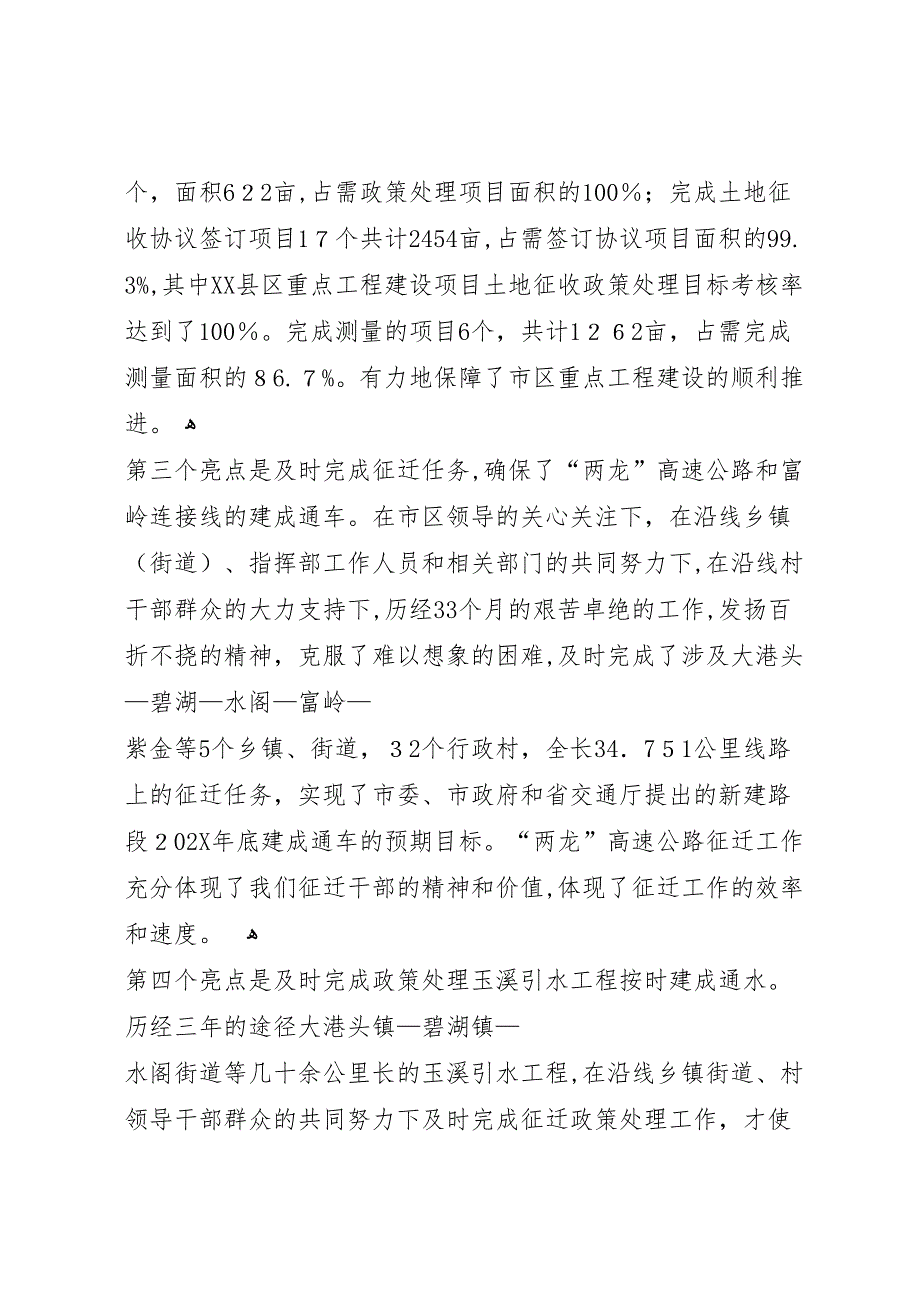 个，面积6２2亩,占需政策处理项目面积的100％；完成土地征
收协议签订项目1７个共计2454亩,占需签订协议项目面积的99.
3%,其中XX县区重点工程建设项目土地征收政策处理目标考核率
达到了100%。完成测量的项目6个，共计1２６2亩，占需完成
测量面积的８6.７%。有力地保障了市区重点工程建设的顺利推
进。 ﻫ
第三个亮点是及时完成征迁任务,确保了“两龙”高速公路和富
岭连接线的建成通车。在市区领导的关心关注下，在沿线乡镇
（街道）、指挥部工作人员和相关部门的共同努力下,在沿线村
干部群众的大力支持下,历经33个月的艰苦卓绝的工作,发扬百
折不挠的精神，克服了难以想象的困难,及时完成了涉及大港头
—碧湖—水阁—富岭—
紫金等5个乡镇、街道，３2个行政村，全长34．７５1公里线路
上的征迁任务，实现了市委、市政府和省交通厅提出的新建路
段２02X年底建成通车的预期目标。“两龙”高速公路征迁工作
充分体现了我们征迁干部的精神和价值,体现了征迁工作的效率
和速度。 ﻫ
第四个亮点是及时完成政策处理玉溪引水工程按时建成通水。
历经三年的途径大港头镇—碧湖镇—
水阁街道等几十余公里长的玉溪引水工程,在沿线乡镇街道、村
领导干部群众的共同努力下及时完成征迁政策处理工作，才使